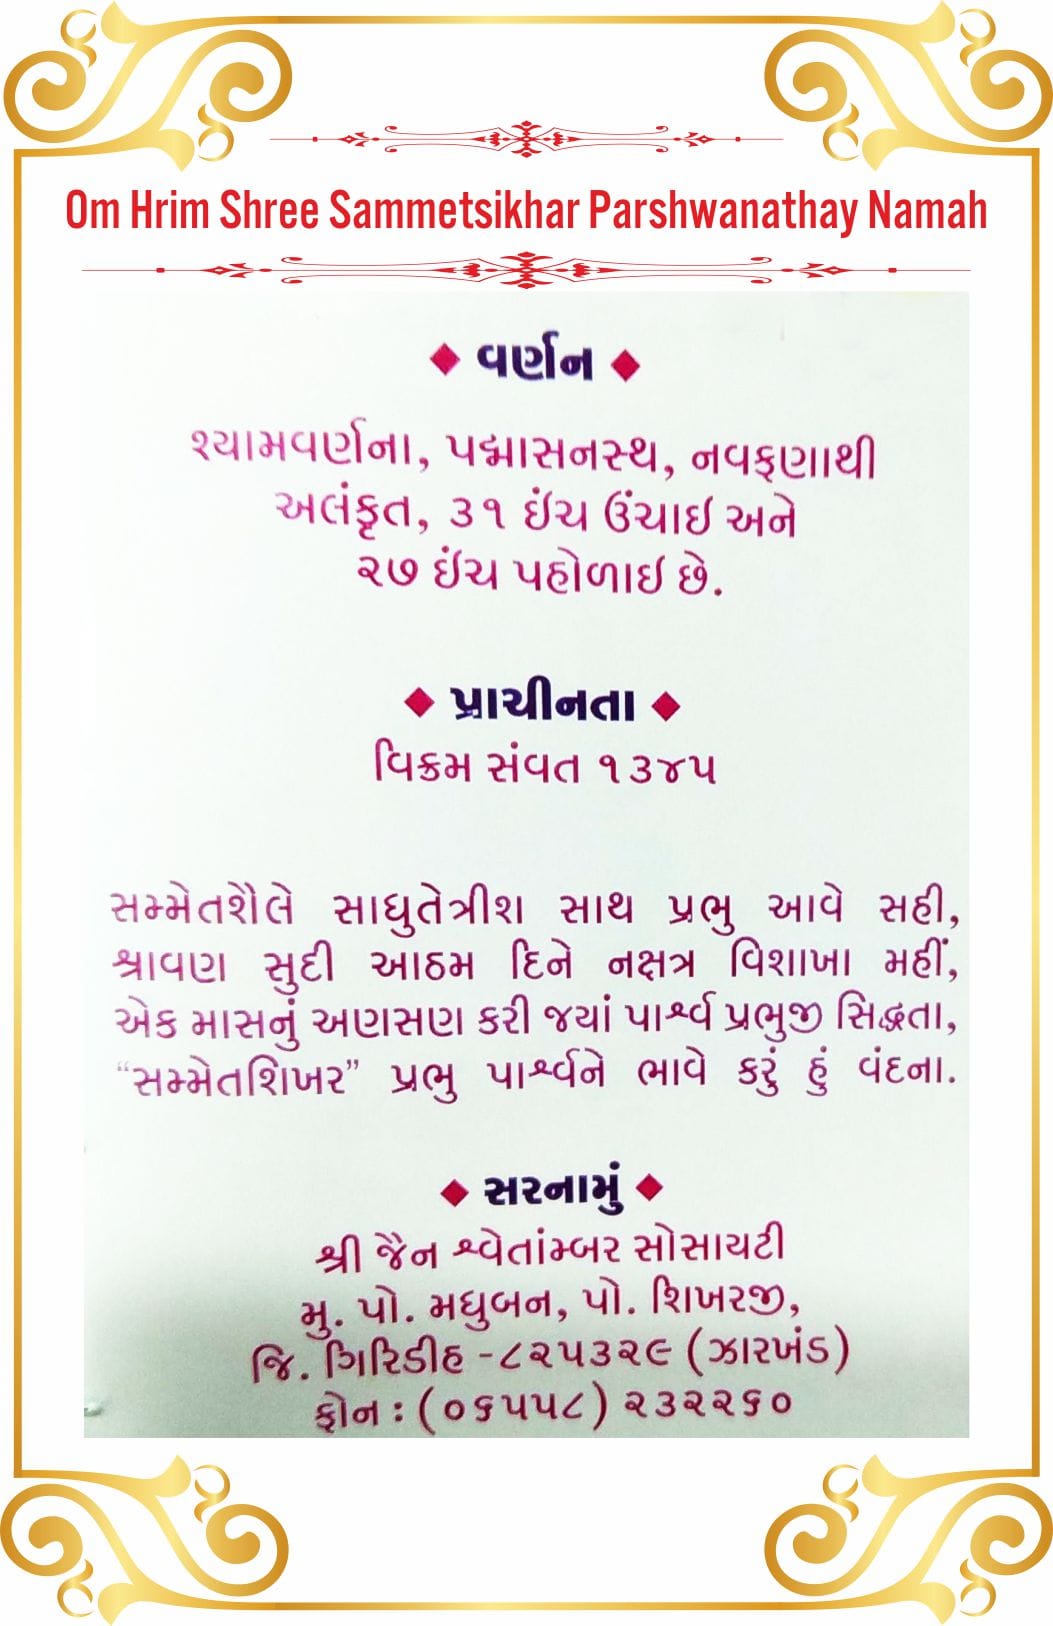 Om Hrim Shree Sammetsikhar Parshwanathay Namah
વર્ણન
શ્યામવર્ણના, પદ્માસનસ્થ, નવફણાથી
અલંકૃત, ૩૧ ઈંચ ઉંચાઈ અને
૨૭ ઈંચ પહોળાઈ છે.
પ્રાચીનતા
વિક્રમ સંવત ૧૩૪૫
સમ્મેતશૈલે સાધુતેત્રીશ સાથ પ્રભુ આવે સહી,
શ્રાવણ સુદી આઠમ દિને નક્ષત્ર વિશાખા મહીં,
એક માસનું અણસણ કરી જયાં પાર્શ્વ પ્રભુજી સિદ્ધતા,
“સમ્મેતશિખર” પ્રભુ પાર્શ્વને ભાવે કરું હું વંદના.
સરનામું
શ્રી જૈન શ્વેતાંમ્બર સોસાયટી
મુ. પો. મધુબન, પો. શિખરજી,
જિ. ગિરિડીહ -૮૨૫૩૨૯ (ઝારખંડ)
ફોન : (૦૬૫૫૮) ૨૩૨૨૬૦